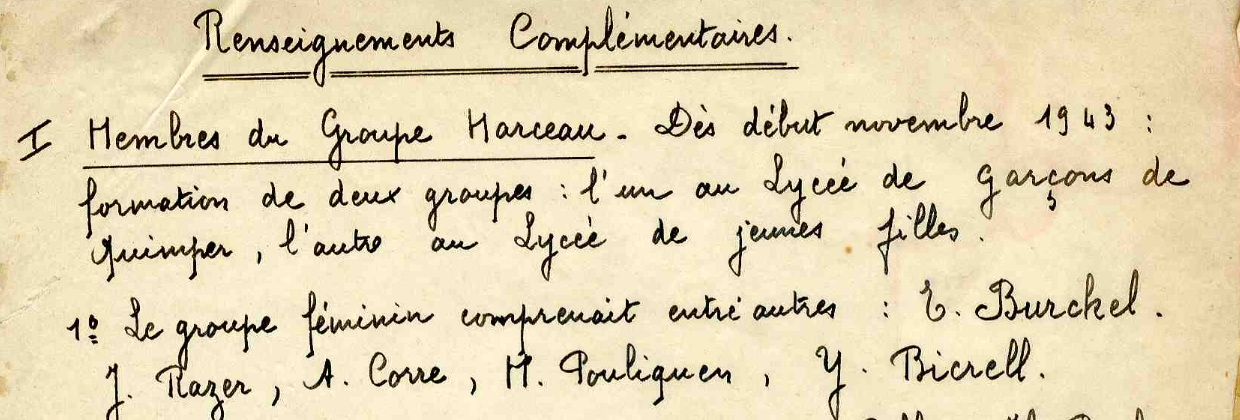 Renseignements Complémentaires.
I Membres du Groupe Marceau. Dès début novembre 1943 :
formation de deux groupes : l'un au Lycée de Garçons de
Quimper, l'autre au Lycée de jeunes filles.
1º Le groupe féminin comprenait entre autres : E. Burckel.
J. Razer, A. Corre, M. Pouliquen, Y. Bicrell.